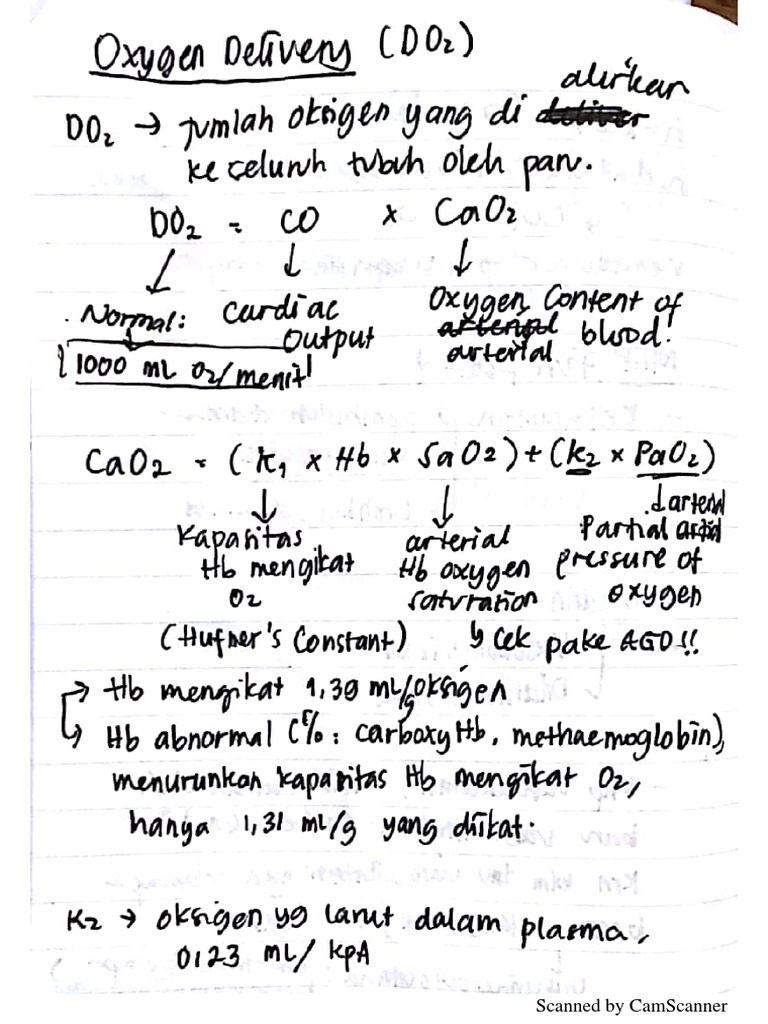 Oxygen Delivery (DO2)
DO2 → jumlah oksigen yang di alirkan
ke seluruh tubuh oleh paru.
DO2 = CO x CaO2
Normal: Cardiac Output Oxygen Content of arterial blood!
1000 mL O2/menit
CaO2 = (k1 x Hb x SaO2) + (k2 x PaO2)
Kapasitas Hb mengikat O2
(Hufner's Constant)
arterial Hb oxygen saturation
↳ Cek pake AGD!!
↓ arterial
Partial pressure of oxygen
→ Hb mengikat 1,39 mL/g oksigen
↳ Hb abnormal (%: carboxyHb, methaemoglobin),
menurunkan kapasitas Hb mengikat O2,
hanya 1,31 mL/g yang diikat.
K2 → oksigen yg larut dalam plasma,
0,23 mL/kpA
Scanned by CamScanner